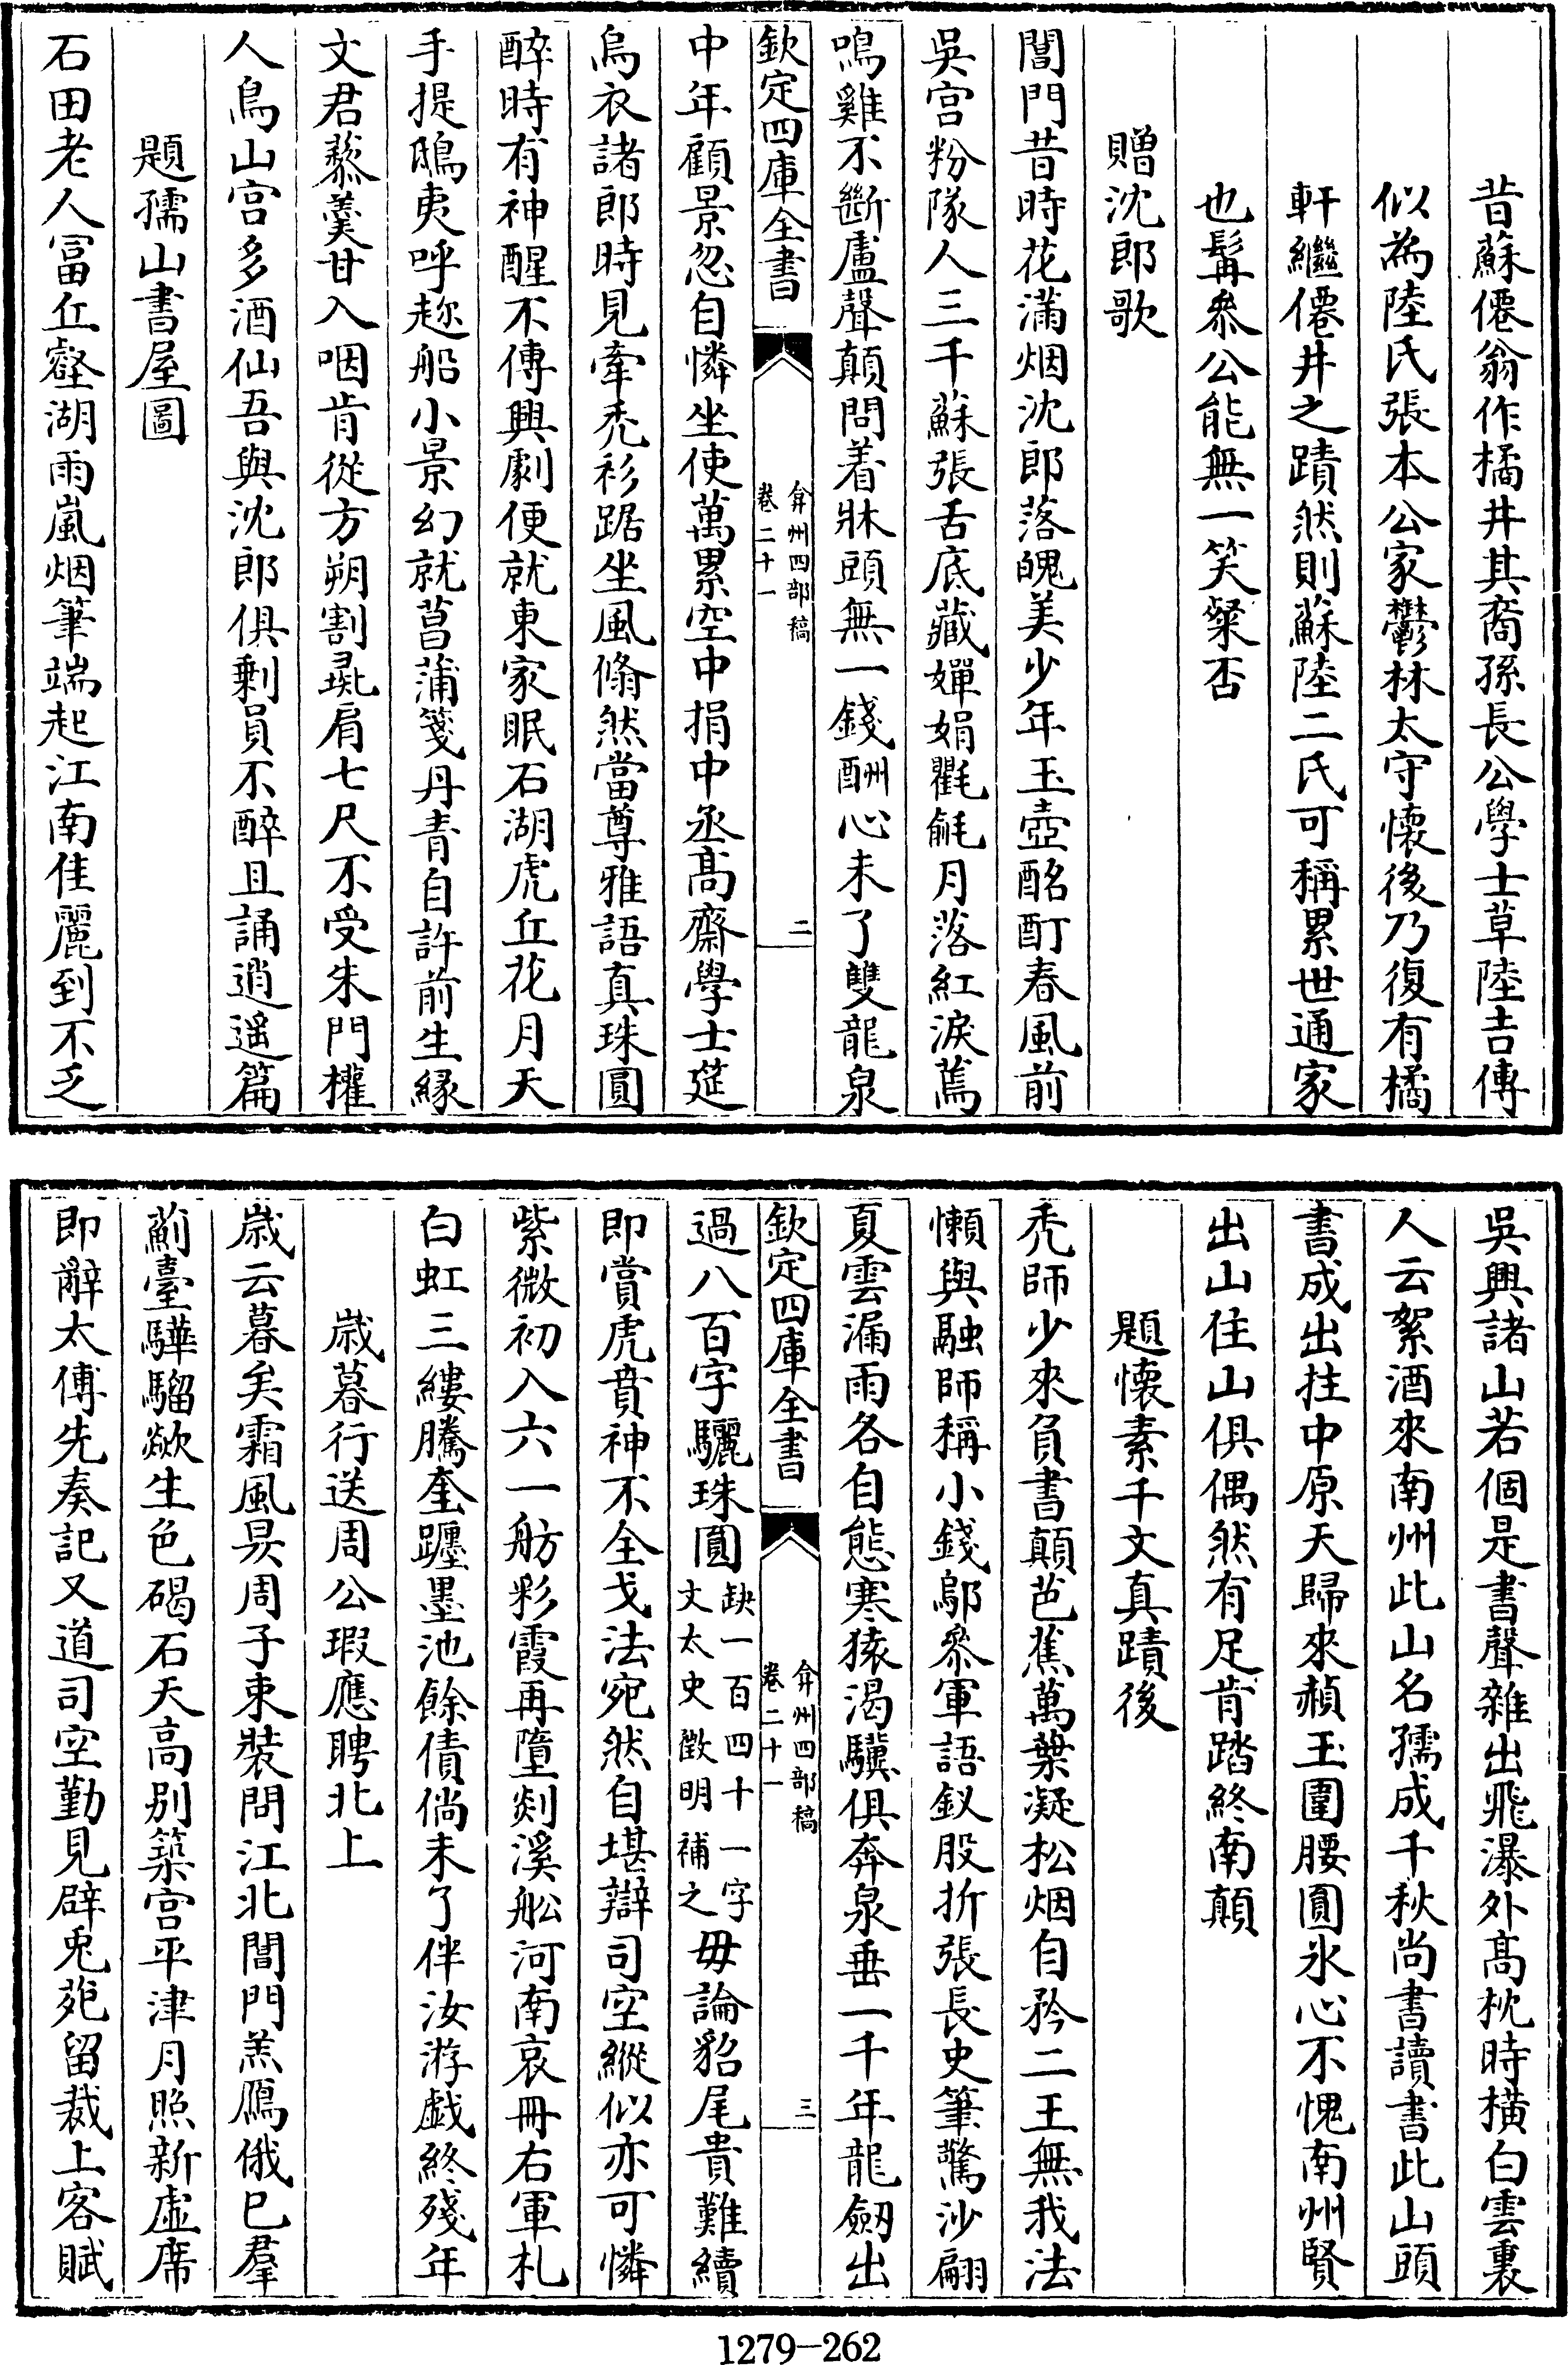 昔蘇僊翁作橘井其裔孫長公學士草陸吉傳
似為陸氏張本公家鬱林太守懷後乃復有橘
軒繼僊井之蹟然則蘇陸二氏可稱累世通家
也髯叅公能無一笑粲否
贈沈郎歌
閶門昔時花滿烟沈郎落魄美少年玉壺酩酊春風前
吳宫粉隊人三千蘇張舌底藏嬋娟氍毹月落紅淚蔫
鳴雞不斷盧聲顛問着牀頭無一錢酬心未了雙龍泉
欽定四庫全書
弇州四部稿
卷二十一
二
中年顧景忽自憐坐使萬累空中捐中丞髙齋學士筵
烏衣諸郎時見牽禿衫踞坐風翛然當尊雅語真珠圓
醉時有神醒不傳興劇便就東家眠石湖虎丘花月天
手提鴟夷呼趂船小景幻就菖蒲箋丹青自許前生緣
文君藜羹甘入咽肯從方朔割彘肩七尺不受朱門權
人鳥山宫多酒仙吾與沈郎俱剩員不醉且誦逍遥篇
題孺山書屋圖
石田老人富丘壑湖雨嵐烟筆端起江南佳麗到不乏
吳興諸山若個是書聲雜出飛瀑外髙枕時橫白雲裏
人云絮酒來南州此山名孺成千秋尚書讀書此山頭
書成出拄中原天歸來頳玉圍腰圓氷心不愧南州賢
出山住山俱偶然有足肯踏終南顛
題懷素千文真蹟後
禿師少來負書顛芭蕉萬葉凝松烟自矜二王無我法
懶與融師稱小錢鄔叅軍語釵股折張長史筆驚沙翩
夏雲漏雨各自態寒猿渴驥俱奔泉垂一千年龍劒出
欽定四庫全書
弇州四部稿
卷二十一
三
過八百字驪珠圓缺一百四十一字文太史徵明補之毋論貂尾貴難續
即賞虎賁神不全戈法宛然自堪辯司空縱似亦可憐
紫微初入六一舫彩霞再墮剡溪舩河南哀冊右軍札
白虹三縷騰奎躔墨池餘債倘未了伴汝游戲終殘年
嵗暮行送周公瑕應聘北上
嵗云暮矣霜風昃周子束裝問江北閶門羔鴈俄已羣
薊臺驊騮歘生色碣石天高别築宫平津月照新虛席
即辭太傅先奏記又道司空勤見辟兎苑留裁上客賦
1279-262